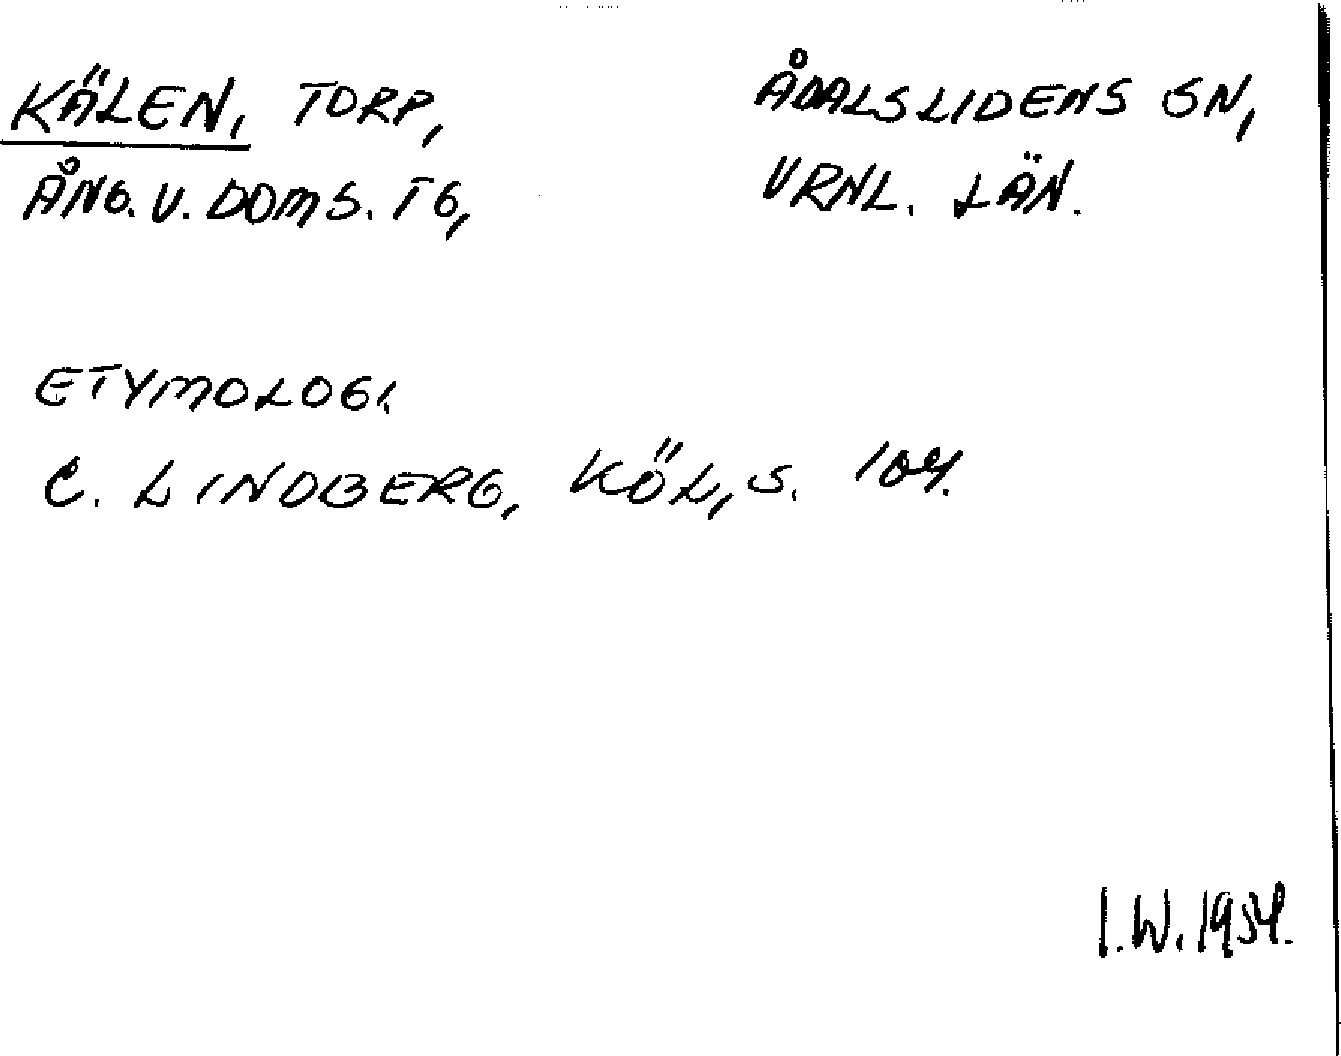 KÄLEN, TORP, ÅDALSLIDENS SN,
ÅNG. V. DOMS. TG, VRNL. LÄN.
ETYMOLOGI.
C. LINDBERG, KÖL, S. 104.
I.W. 1954.